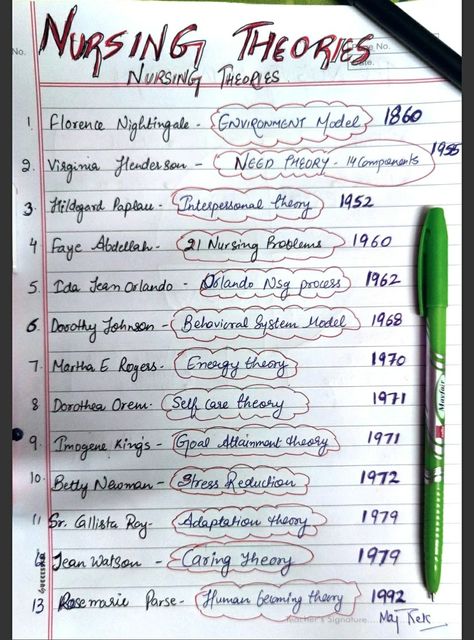 NURSING THEORIES
No.
Date.
NURSING THEORIES
1. Florence Nightingale - ENVIRONMENT Model 1860
2. Virginia Henderson - NEED THEORY - 14 Components 1955
3. Hildegard Paplau - Interpersonal theory 1952
4 Faye Abdellah - 21 Nursing Problems 1960
5. Ida Jean Orlando - Orlando Nsg process 1962
6. Dorothy Johnson - Behavioral System Model 1968
7. Martha E Rogers - Energy theory 1970
8 Dorothea Orem - Self care theory 1971
9. Imogene King's - Goal Attainment theory 1971
10. Betty Newman - Stress Reduction 1972
11 Sr. Callista Roy - Adaptation theory 1979
12 Jean Watson - Caring theory 1979
13 Rosemarie Parse - Human becoming theory 1992
Teacher's Signature
Mayfair